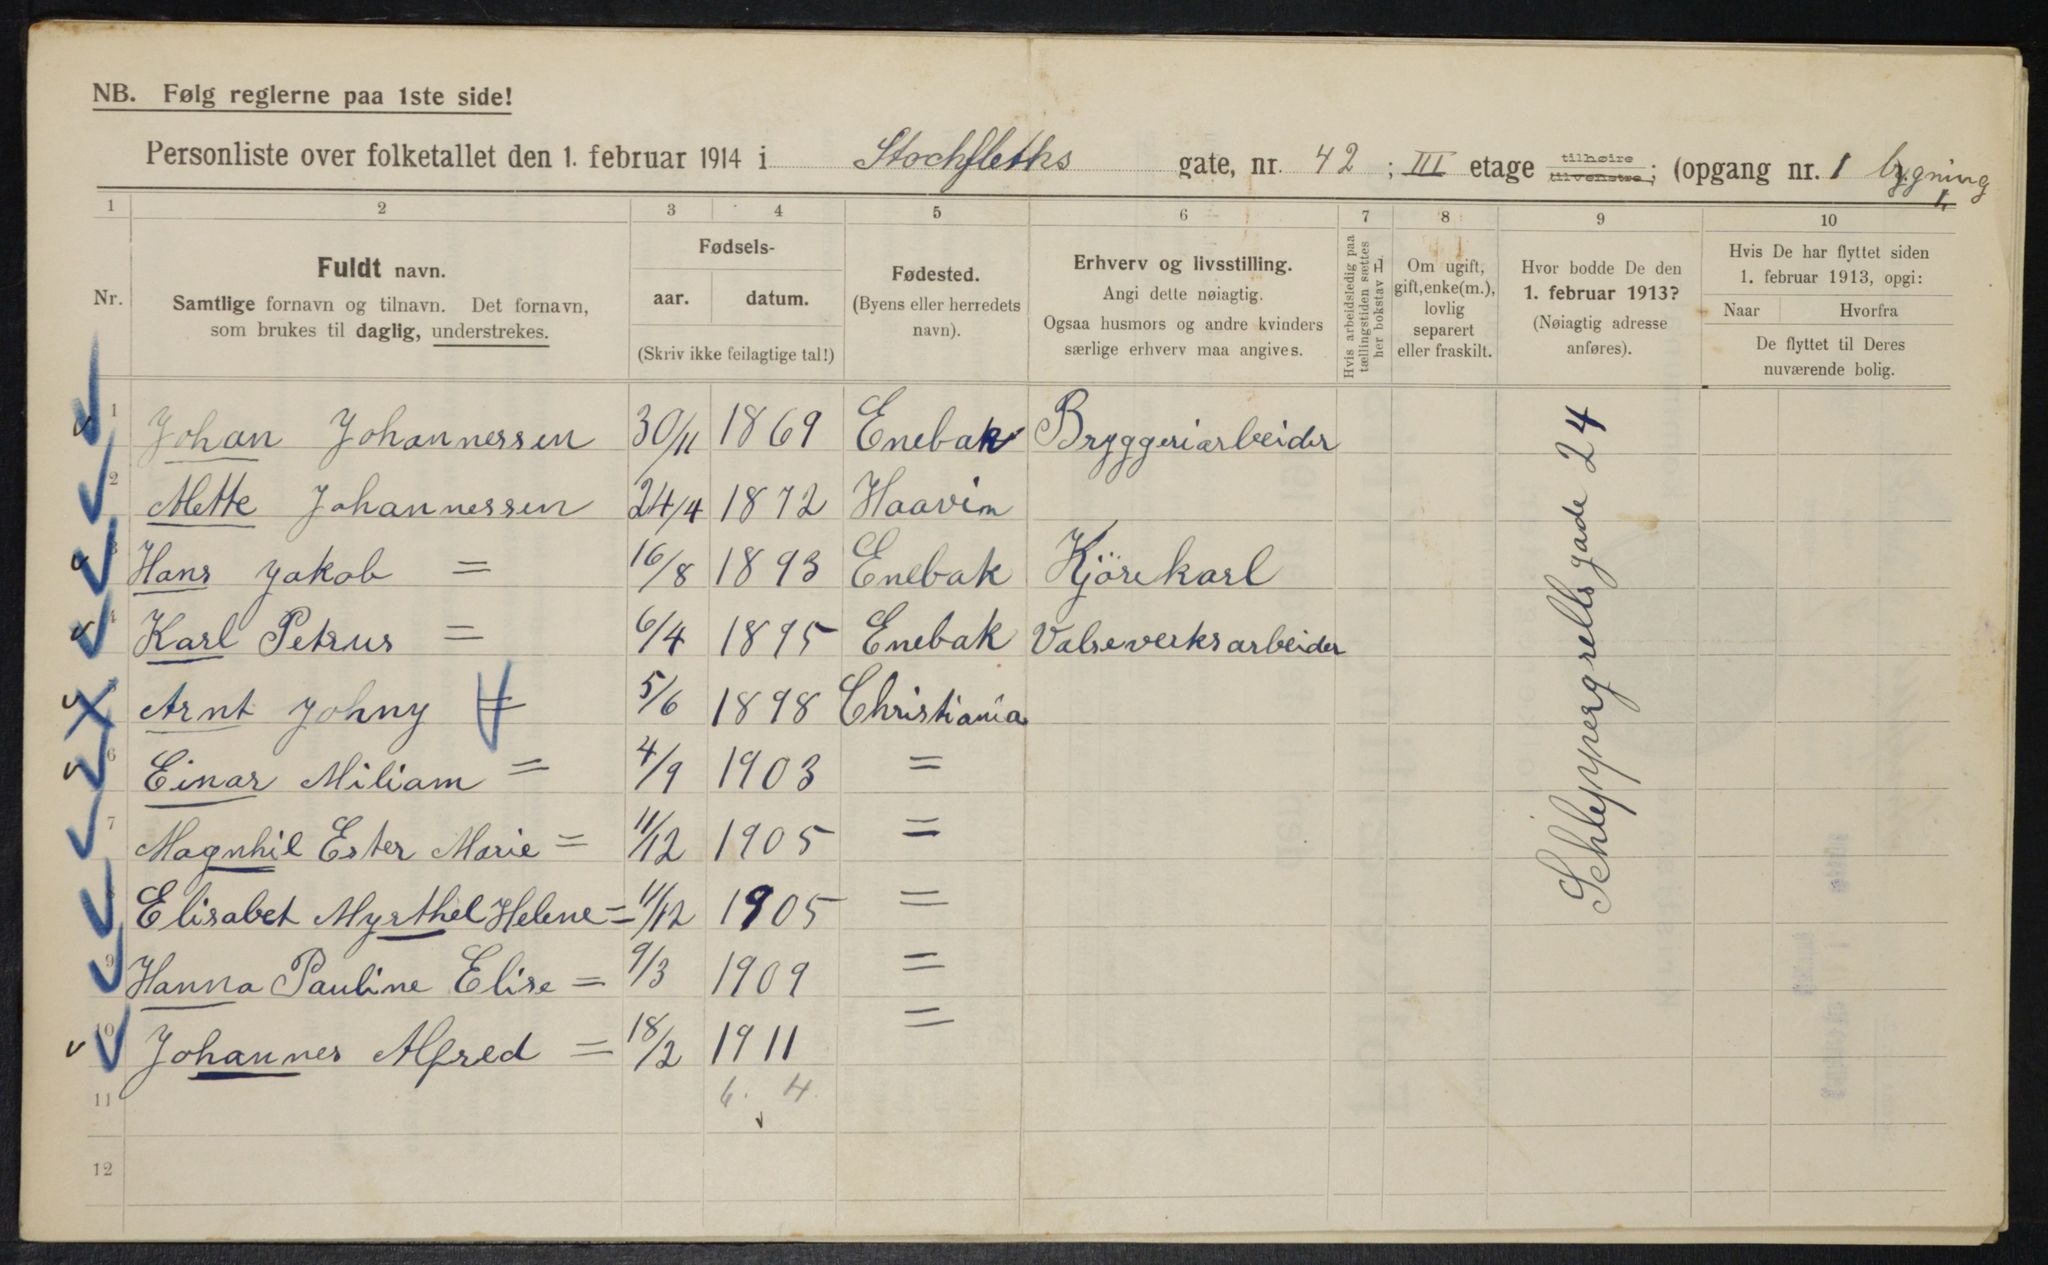 NB. Følg reglerne paa 1ste side!
Personliste over folketallet den 1. februar 1914 i Stochfleths gate, nr. 42 ; III etage tilhøire tilvenstre; (opgang nr. 1 bygning 1,
1 2 3 4 5 6 7 8 9 10
Nr.
Fuldt navn.
Samtlige fornavn og tilnavn. Det fornavn,
som brukes til daglig, understrekes.
Fødsels-
aar. datum.
(Skriv ikke feilagtige tal!)
Fødested.
(Byens eller herredets
navn).
Erhverv og livsstilling.
Angi dette nøiagtig.
Ogsaa husmors og andre kvinders
særlige erhverv maa angives.
Hvis arbeidsledig paa
tællingstiden sættes
her bokstav L
Om ugift,
gift, enke(m.),
lovlig
separert
eller fraskilt.
Hvor bodde De den
1. februar 1913?
(Nøiagtig adresse
anføres).
Hvis De har flyttet siden
1. februar 1913, opgi:
Naar Hvorfra
De flyttet til Deres
nuværende bolig.
1 Johan Johannessen 30/11 1869 Enebak Bryggeriarbeider
2 Mette Johannessen 24/4 1872 Haavin
3 Hans Jakob = 16/8 1893 Enebak Kjörekarl
4 Karl Petrus = 6/4 1895 Enebak Valseverksarbeider
Arnt Johny = 5/6 1898 Christiania
6 Einar Miliam = 4/9 1903 =
7 Magnhil Ester Marie = 11/12 1905 =
8 Elisabet Myrthel Helene = 11/12 1905 =
9 Hanna Pauline Elise = 9/3 1909 =
10 Johannes Alfred = 18/2 1911 =
Schleppergrellsgade 24
11 6. 4.
12